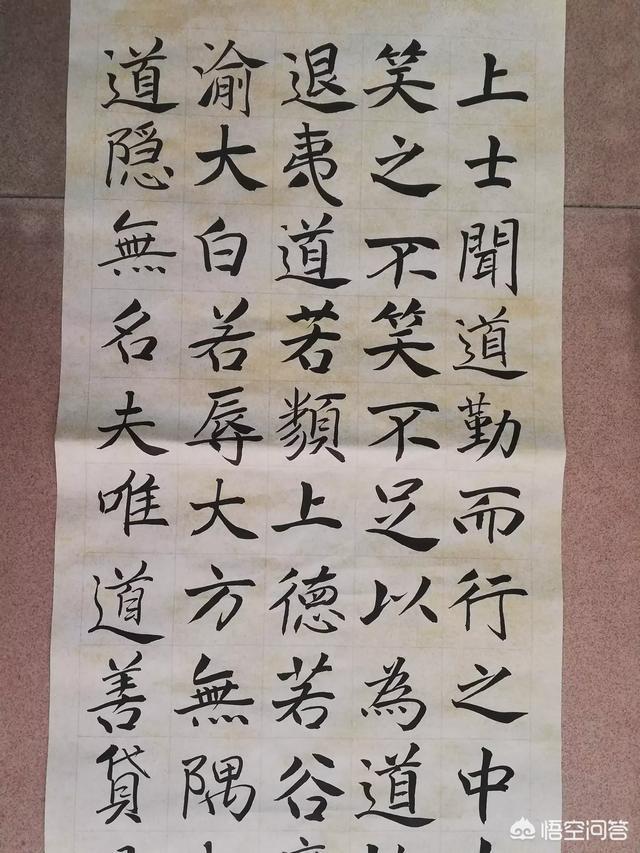 上士聞道勤而行之中
笑之不笑不足以為道
退夷道若類上德若谷
渝大白若辱大方無隅
道隱無名夫唯道善貸
悟空问答